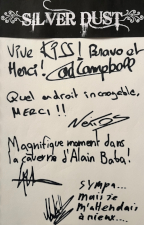 SILVER DUST
Vive KISS! Bravo et
Merci!
Quel endroit incroyable,
MERCI!!
Magnifique moment dans
la caverne d'Alain Baba!
Sympa...
mais je
m'attendais
à mieux....